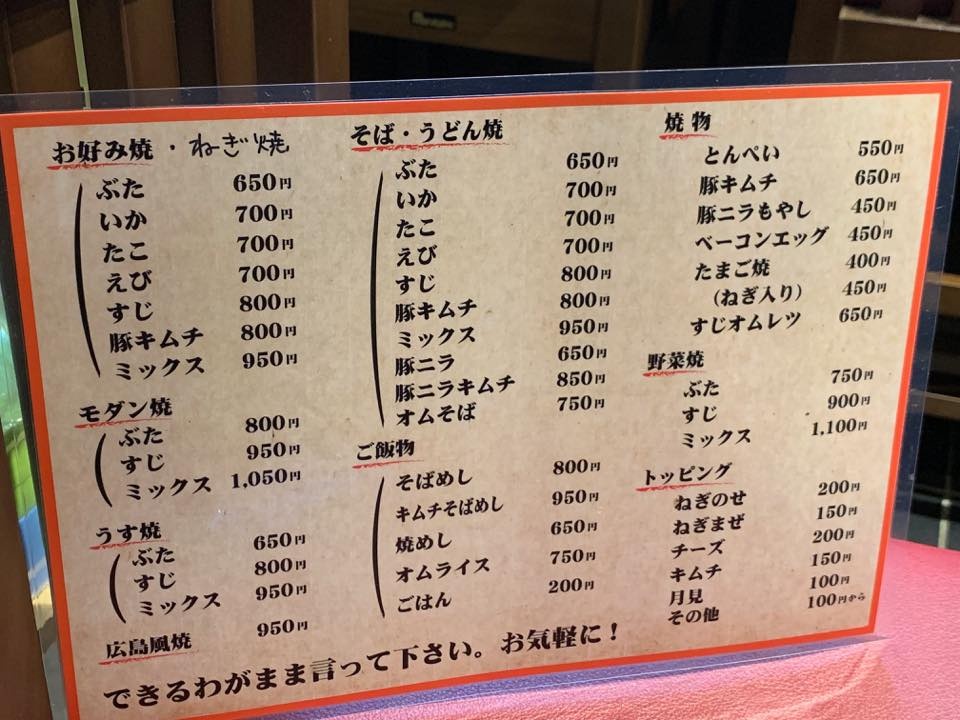 お好み焼・ねぎ焼
ぶた 650円
いか 700円
たこ 700円
えび 700円
すじ 800円
豚キムチ 800円
ミックス 950円
モダン焼
ぶた 800円
すじ 950円
ミックス 1,050円
うす焼
ぶた 650円
すじ 800円
ミックス 950円
広島風焼 950円
そば・うどん焼
ぶた 650円
いか 700円
たこ 700円
えび 700円
すじ 800円
豚キムチ 800円
ミックス 950円
豚ニラ 650円
豚ニラキムチ 850円
オムそば 750円
ご飯物
そばめし 800円
キムチそばめし 950円
焼めし 650円
オムライス 750円
ごはん 200円
焼物
とんぺい 550円
豚キムチ 650円
豚ニラもやし 450円
ベーコンエッグ 450円
たまご焼 400円
(ねぎ入り) 450円
すじオムレツ 650円
野菜焼
ぶた 750円
すじ 900円
ミックス 1,100円
トッピング
ねぎのせ 200円
ねぎまぜ 150円
チーズ 200円
キムチ 150円
月見 100円
その他 100円から
できるわがまま言って下さい。お気軽に！